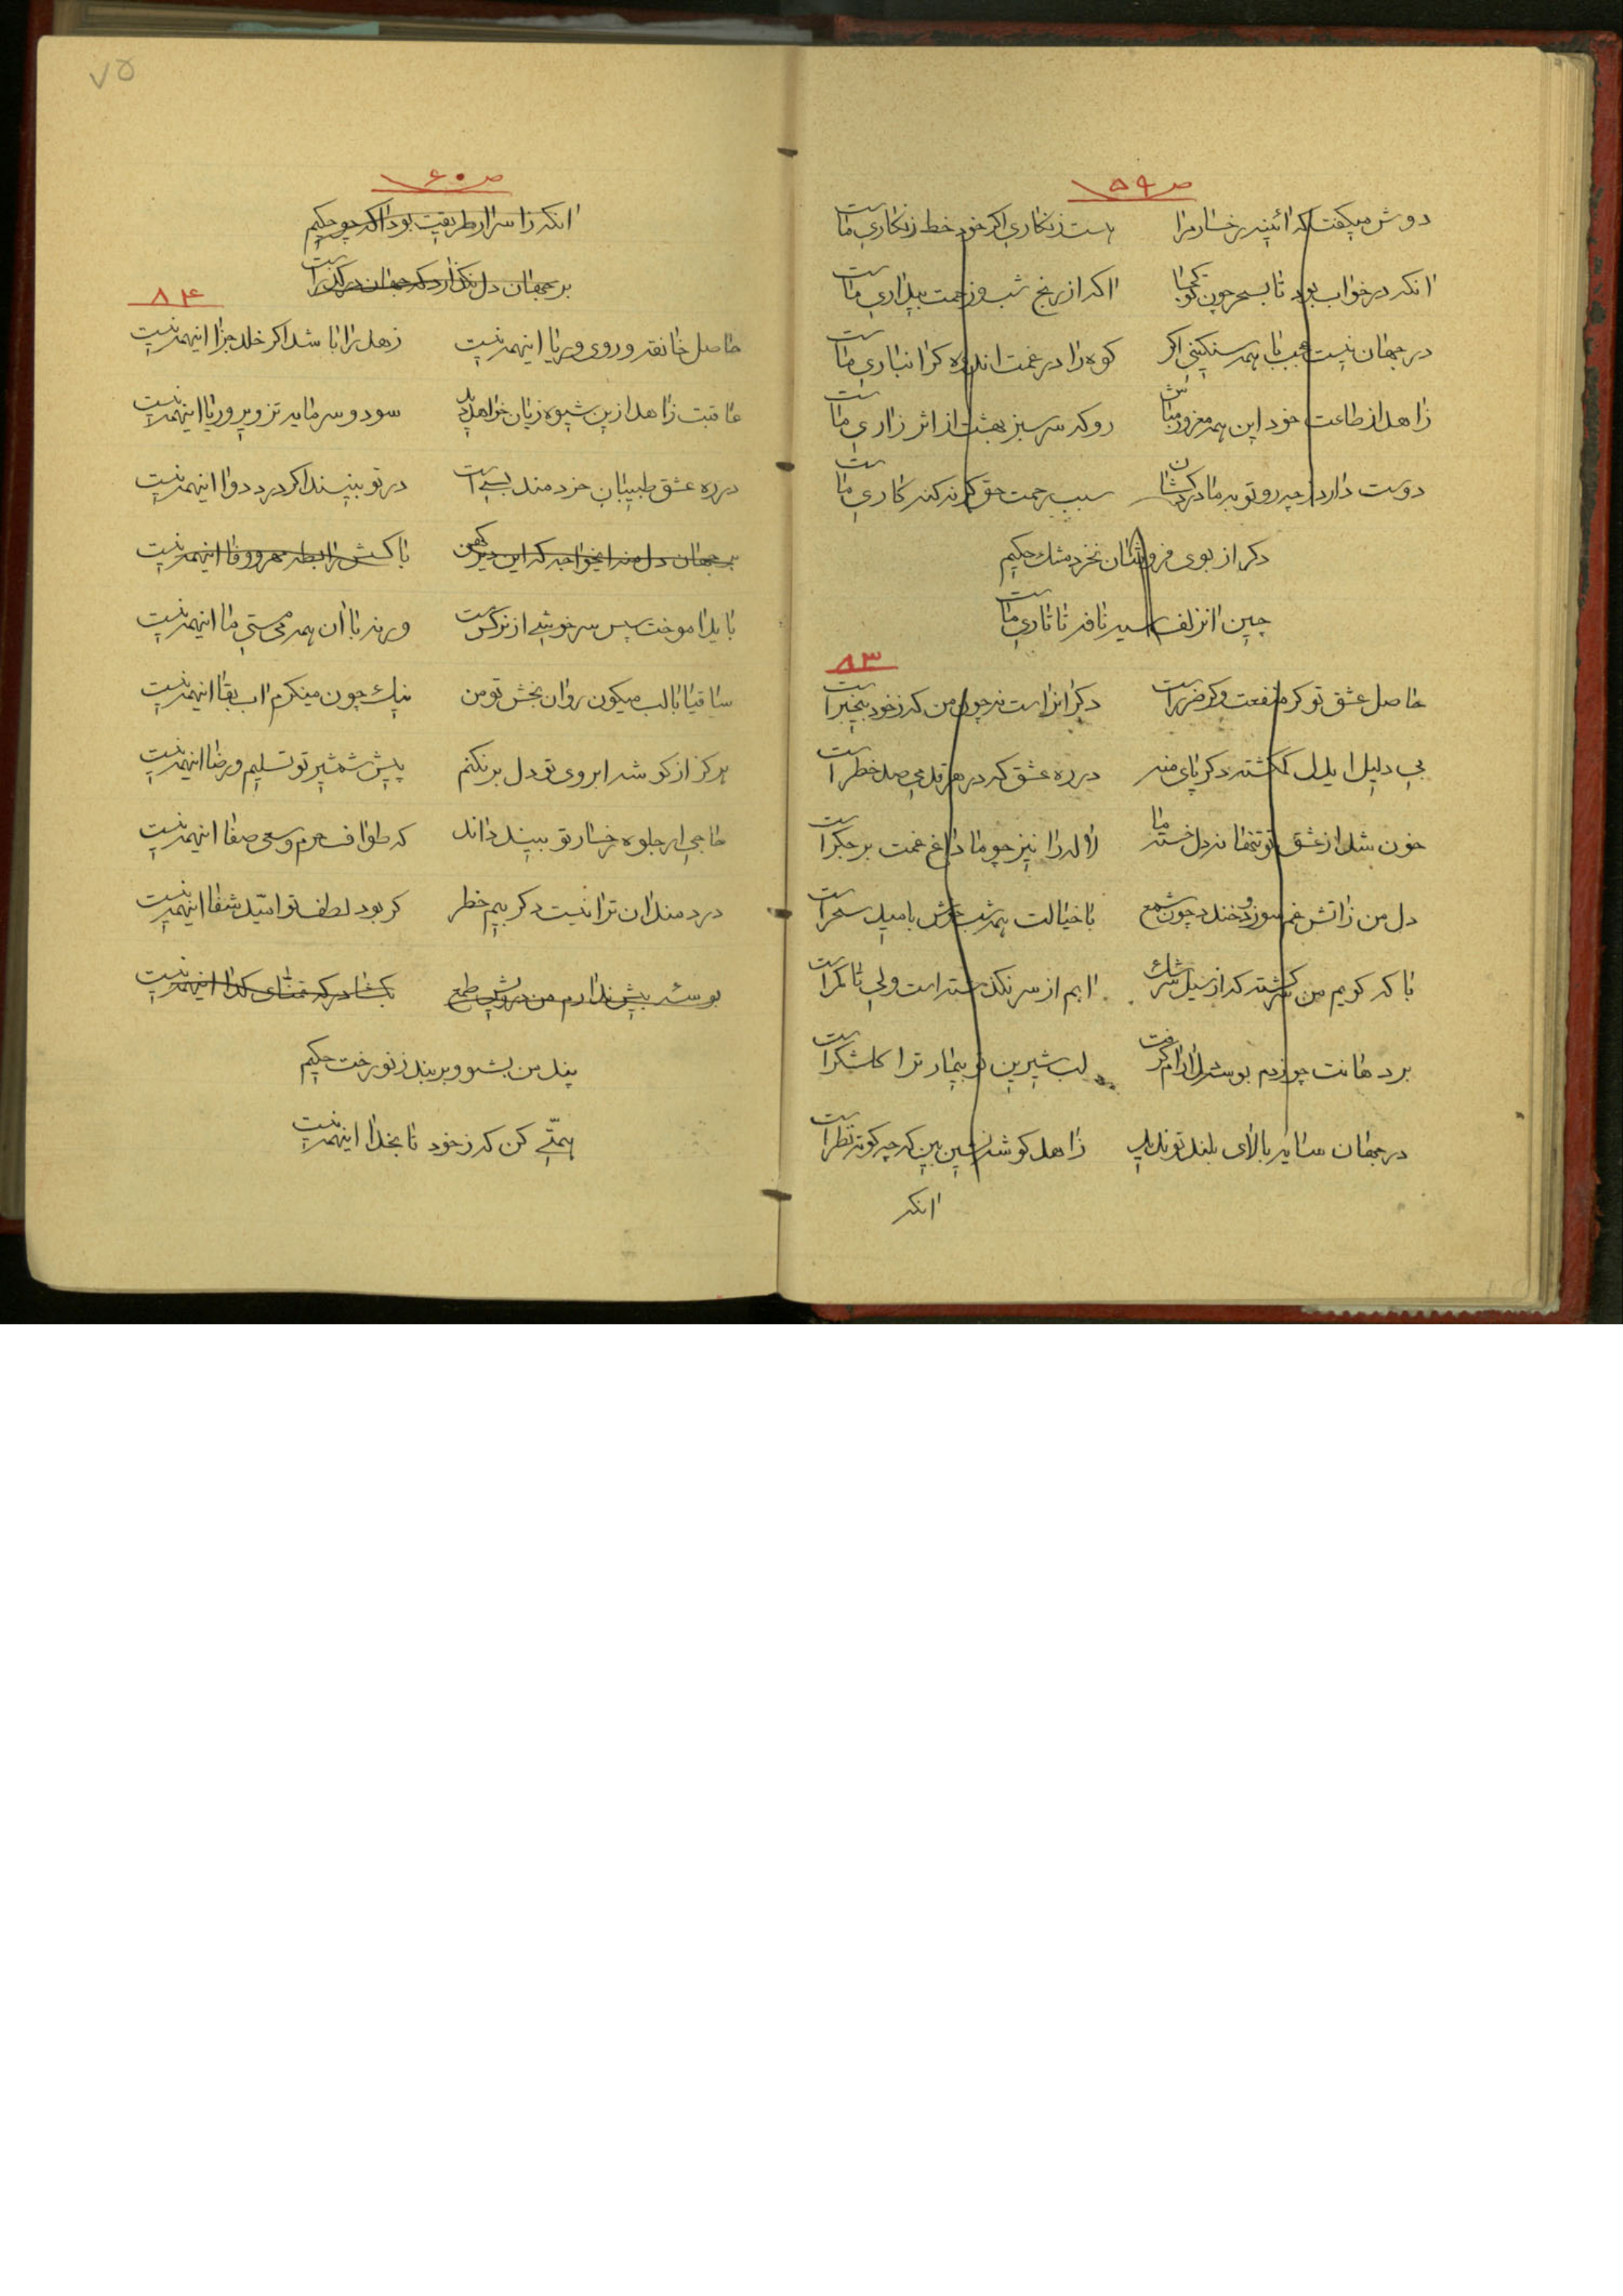 ص ۵۹
دوش میگفت که ائینه رخسار مرا هست زنکاری اکر خود خط زنکاری ماست
انکه در خواب بود تا بسحر چون کجا اکه از رنج شب و زحمت بیداری ماست
در جهان نیست عجب با همه سنکینی اکر کوه را در غمت اندازه کرانباری ماست
زاهد از طاعت خود این همه مغرور مباش رو که سرسبز بهشت از اثر زاری ماست
دوست دارد از چه رو تو بر ما در سبب رحمت حق کر نه کنه کاری ماست
دکر از بوی فروشان نخرد مشک حکیم
چین ان زلف سیه نافه تاتاری ماست
۸۳
حاصل عشق تو کر منفعت و کر ضرر است دکران راست نه چون من که ز خود بیخبر است
بی دلیل ای دل کمکشته دکر پای منه در ره عشق که در هر قدمی صد خطر است
خون شد از عشق تو تنها نه دل خسته ما لاله را نیز چو ما داغ غمت بر جکر است
دل من ز اتش غم سوزد و خندد چون شمع با خیالت همه شب خوش بامید سحر است
با که کویم من سرکشته که از سیل سرشک ابم از سر نکذشته است ولی تا کمر است
بر دهانت چو زدم بوسه دل ارام کرفت لب شیرین تو بیمار ترا کلشکر است
در جهان سایه بالای بلند تو ندید زاهد کوشه نشین بین که چه کوته نظر است
انکه
۷۵
ص ۶۰
انکه ز اسرار طریقت بود اکه چو حکیم
بر جهان دل نکذارد که جهان در کذر است
۸۴
حاصل خانقه و روی و ریا اینهمه نیست زهد را باشد اکر خلد جزا اینهمه نیست
عاقبت زاهد ازین شیوه زیان خواهد دید سود و سرمایه تزویر و ریا اینهمه نیست
در ره عشق طبیبان خردمند بسی است در تو بینند اکر درد دوا اینهمه نیست
بر جهان دل منه ایخواجه که این دیر کهن با کسش رابطه مهر و وفا اینهمه نیست
باید اموخت پس سرخوشی از نرکس مست ورنه با ان همه می مستی ما اینهمه نیست
ساقیا با لب میکون روان بخش تو من نیک چون مینکرم اب بقا اینهمه نیست
هرکز از کوشه ابروی تو دل برنکنم پیش شمشیر تو تسلیم و رضا اینهمه نیست
حاجی ار جلوه رخسار تو بیند داند که طواف حرم و سعی صفا اینهمه نیست
دردمندان ترا نیست دکر بیم خطر کر بود لطف تو امّید شفا اینهمه نیست
بوسهٔ بیش ندارم من درویش طمع بکشا در که تمنّای کدا اینهمه نیست
پند من بشنو و بربند ز نو رخت حکیم
همّتی کن که ز خود تا بخدا اینهمه نیست